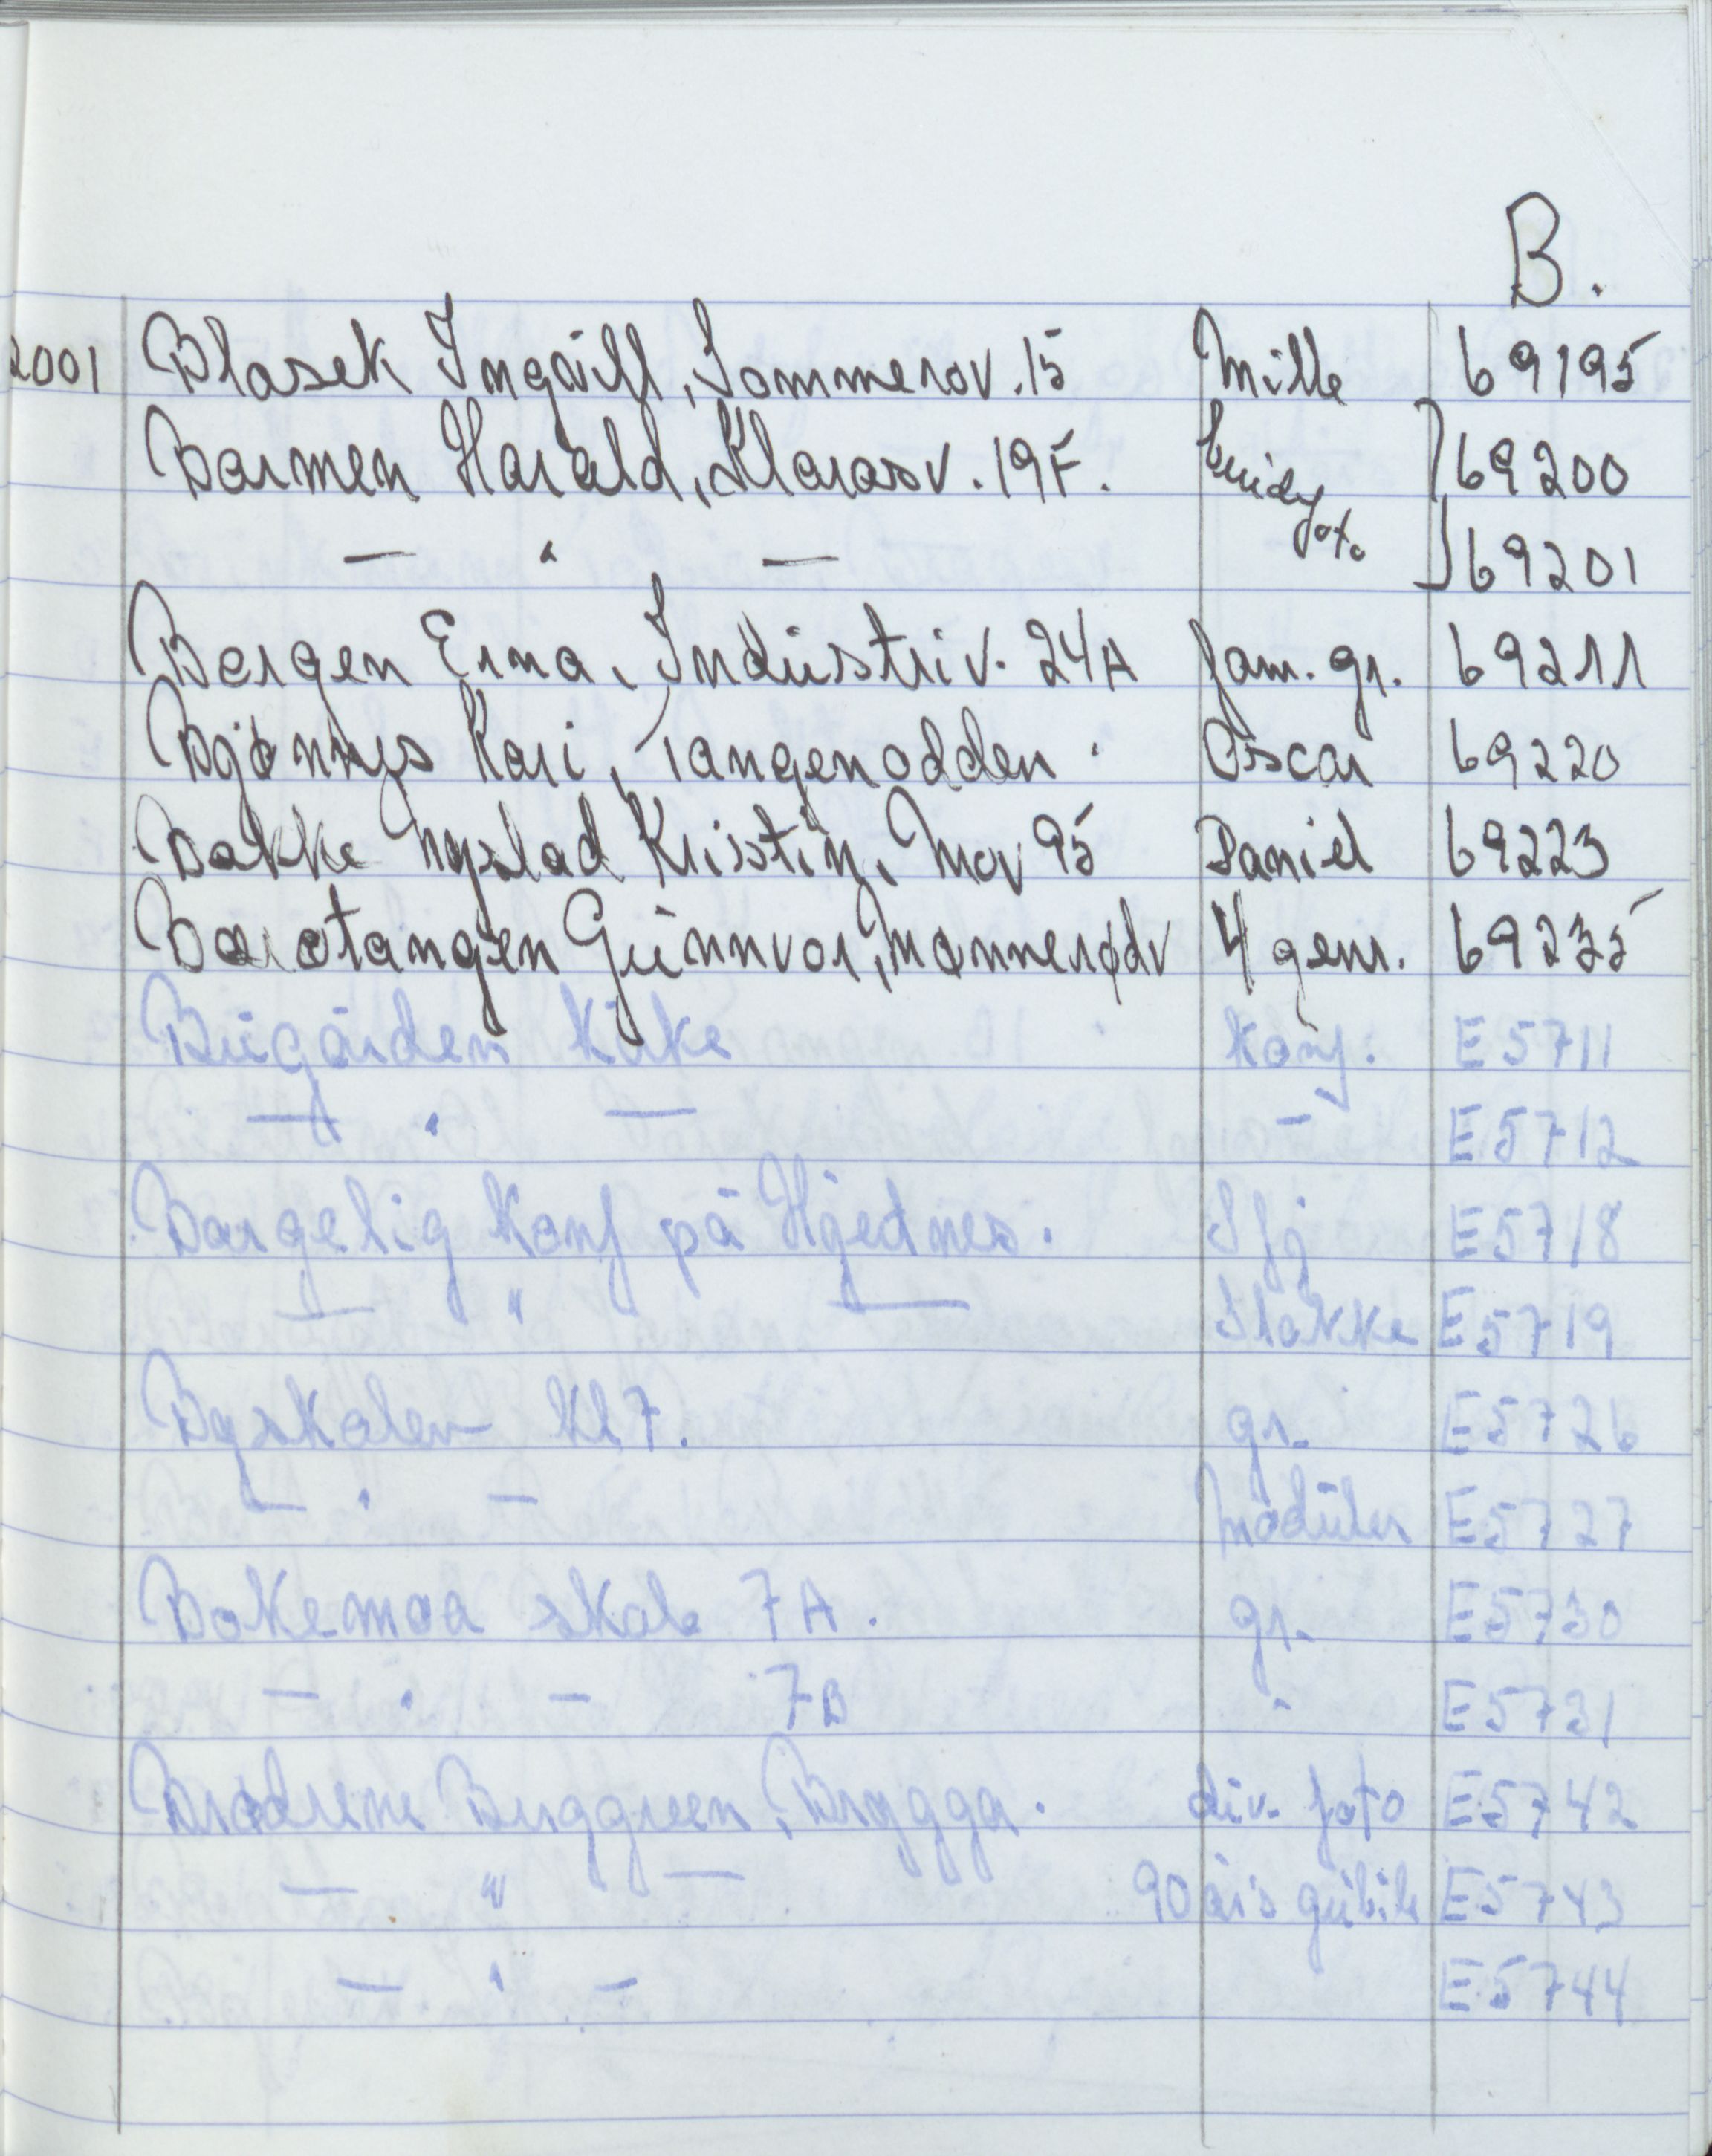 B.
2001 Blasek Ingvill, Sommerov. 15 Mille 69195
Barmen Harald, Klarasv. 19F. 69200
— " — foto 69201
Bergen Erna, Industriv. 24A fam. gr. 69211
Bjønnes Kari, Tangenodden. Oscar 69220
Bakke Nystad Kristin, Mov 95 Daniel 69223
Barstangen Gunnvor, Mannerødv 4 gen. 69235
Bugården Kirke Konf. E5711
— " — - E5712
Borgelig Konf på Hjertnes. Sfj E5718
— " — Stokke E5719
Byskolen Kl 7. gr. E5726
— " — Moduler E5727
Bokemoa skole 7A. gr. E5730
— " — 7B " E5731
Brødrene Berggreen, Brygga. div. foto E5742
— " — 90 års jubile E5743
— " — E5744